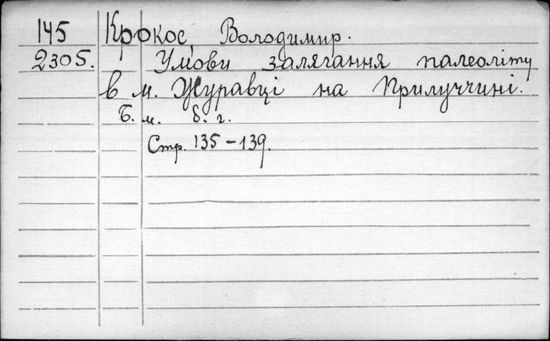 145 Крокос, Володимир.
2305. Умови залягання палеоліту
в м. Журавці на Прилуччині.
Б. м. б. г.
Стр. 135-139.